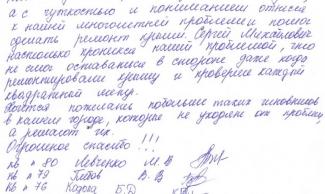 а с чуткостью и пониманием отнёсся
к нашей многолетней проблеме и помог
сделать ремонт крыши. Сергей Михайлович
настолько проникся нашей проблемой, что
не смог оставаться в стороне даже когда
ремонтировали крышу и проверял каждый
квадратный метр.
Хочется пожелать побольше таких чиновников
в нашем городе, которые не уходят от проблем,
а решают их.
Огромное спасибо!!!
кв № 80 Левченко М В
кв № 79 В. В
кв № 76 Б Д